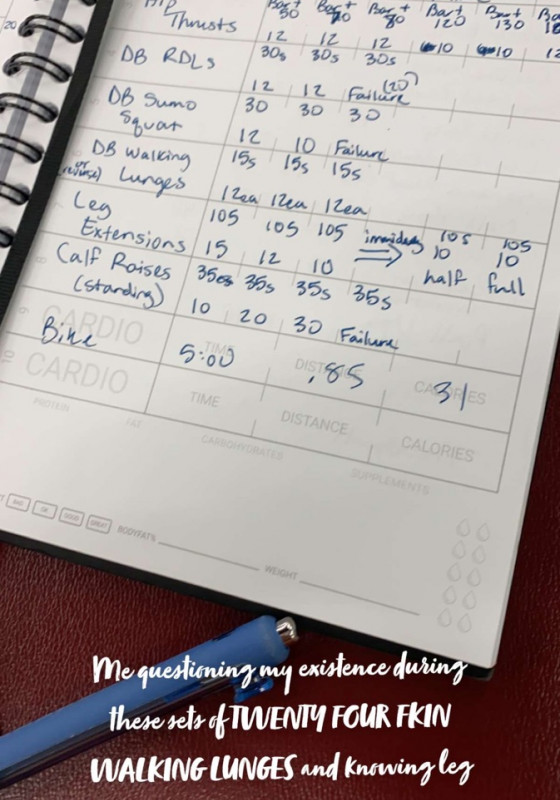 Thrusts
Bar+ 50 Bar+ 70 Bar+ 80 Bar+ 120 Bar+ 130
12 12 12 10 10 12
20
DB RDLs 30s 30s 30s
12 12 Failure (20)
DB Sumo Squat 30 30 30
12 10 Failure
DB Walking (or reverse) Lunges 15s 15s 15s
12ea 12ea 12ea
Leg Extensions 105 105 105 105 105
15 12 10 10 10
half full
Calf Raises (standing) 35s 35s 35s
10 20 30 Failure
9 CARDIO TIME DISTANCE CALORIES
Bike 5:00 .85 31
10 CARDIO TIME DISTANCE CALORIES
PROTEIN FAT CARBOHYDRATES SUPPLEMENTS
BAD OK GOOD GREAT BODYFAT% WEIGHT
Me questioning my existence during
these sets of TWENTY FOUR FKIN
WALKING LUNGES and knowing leg